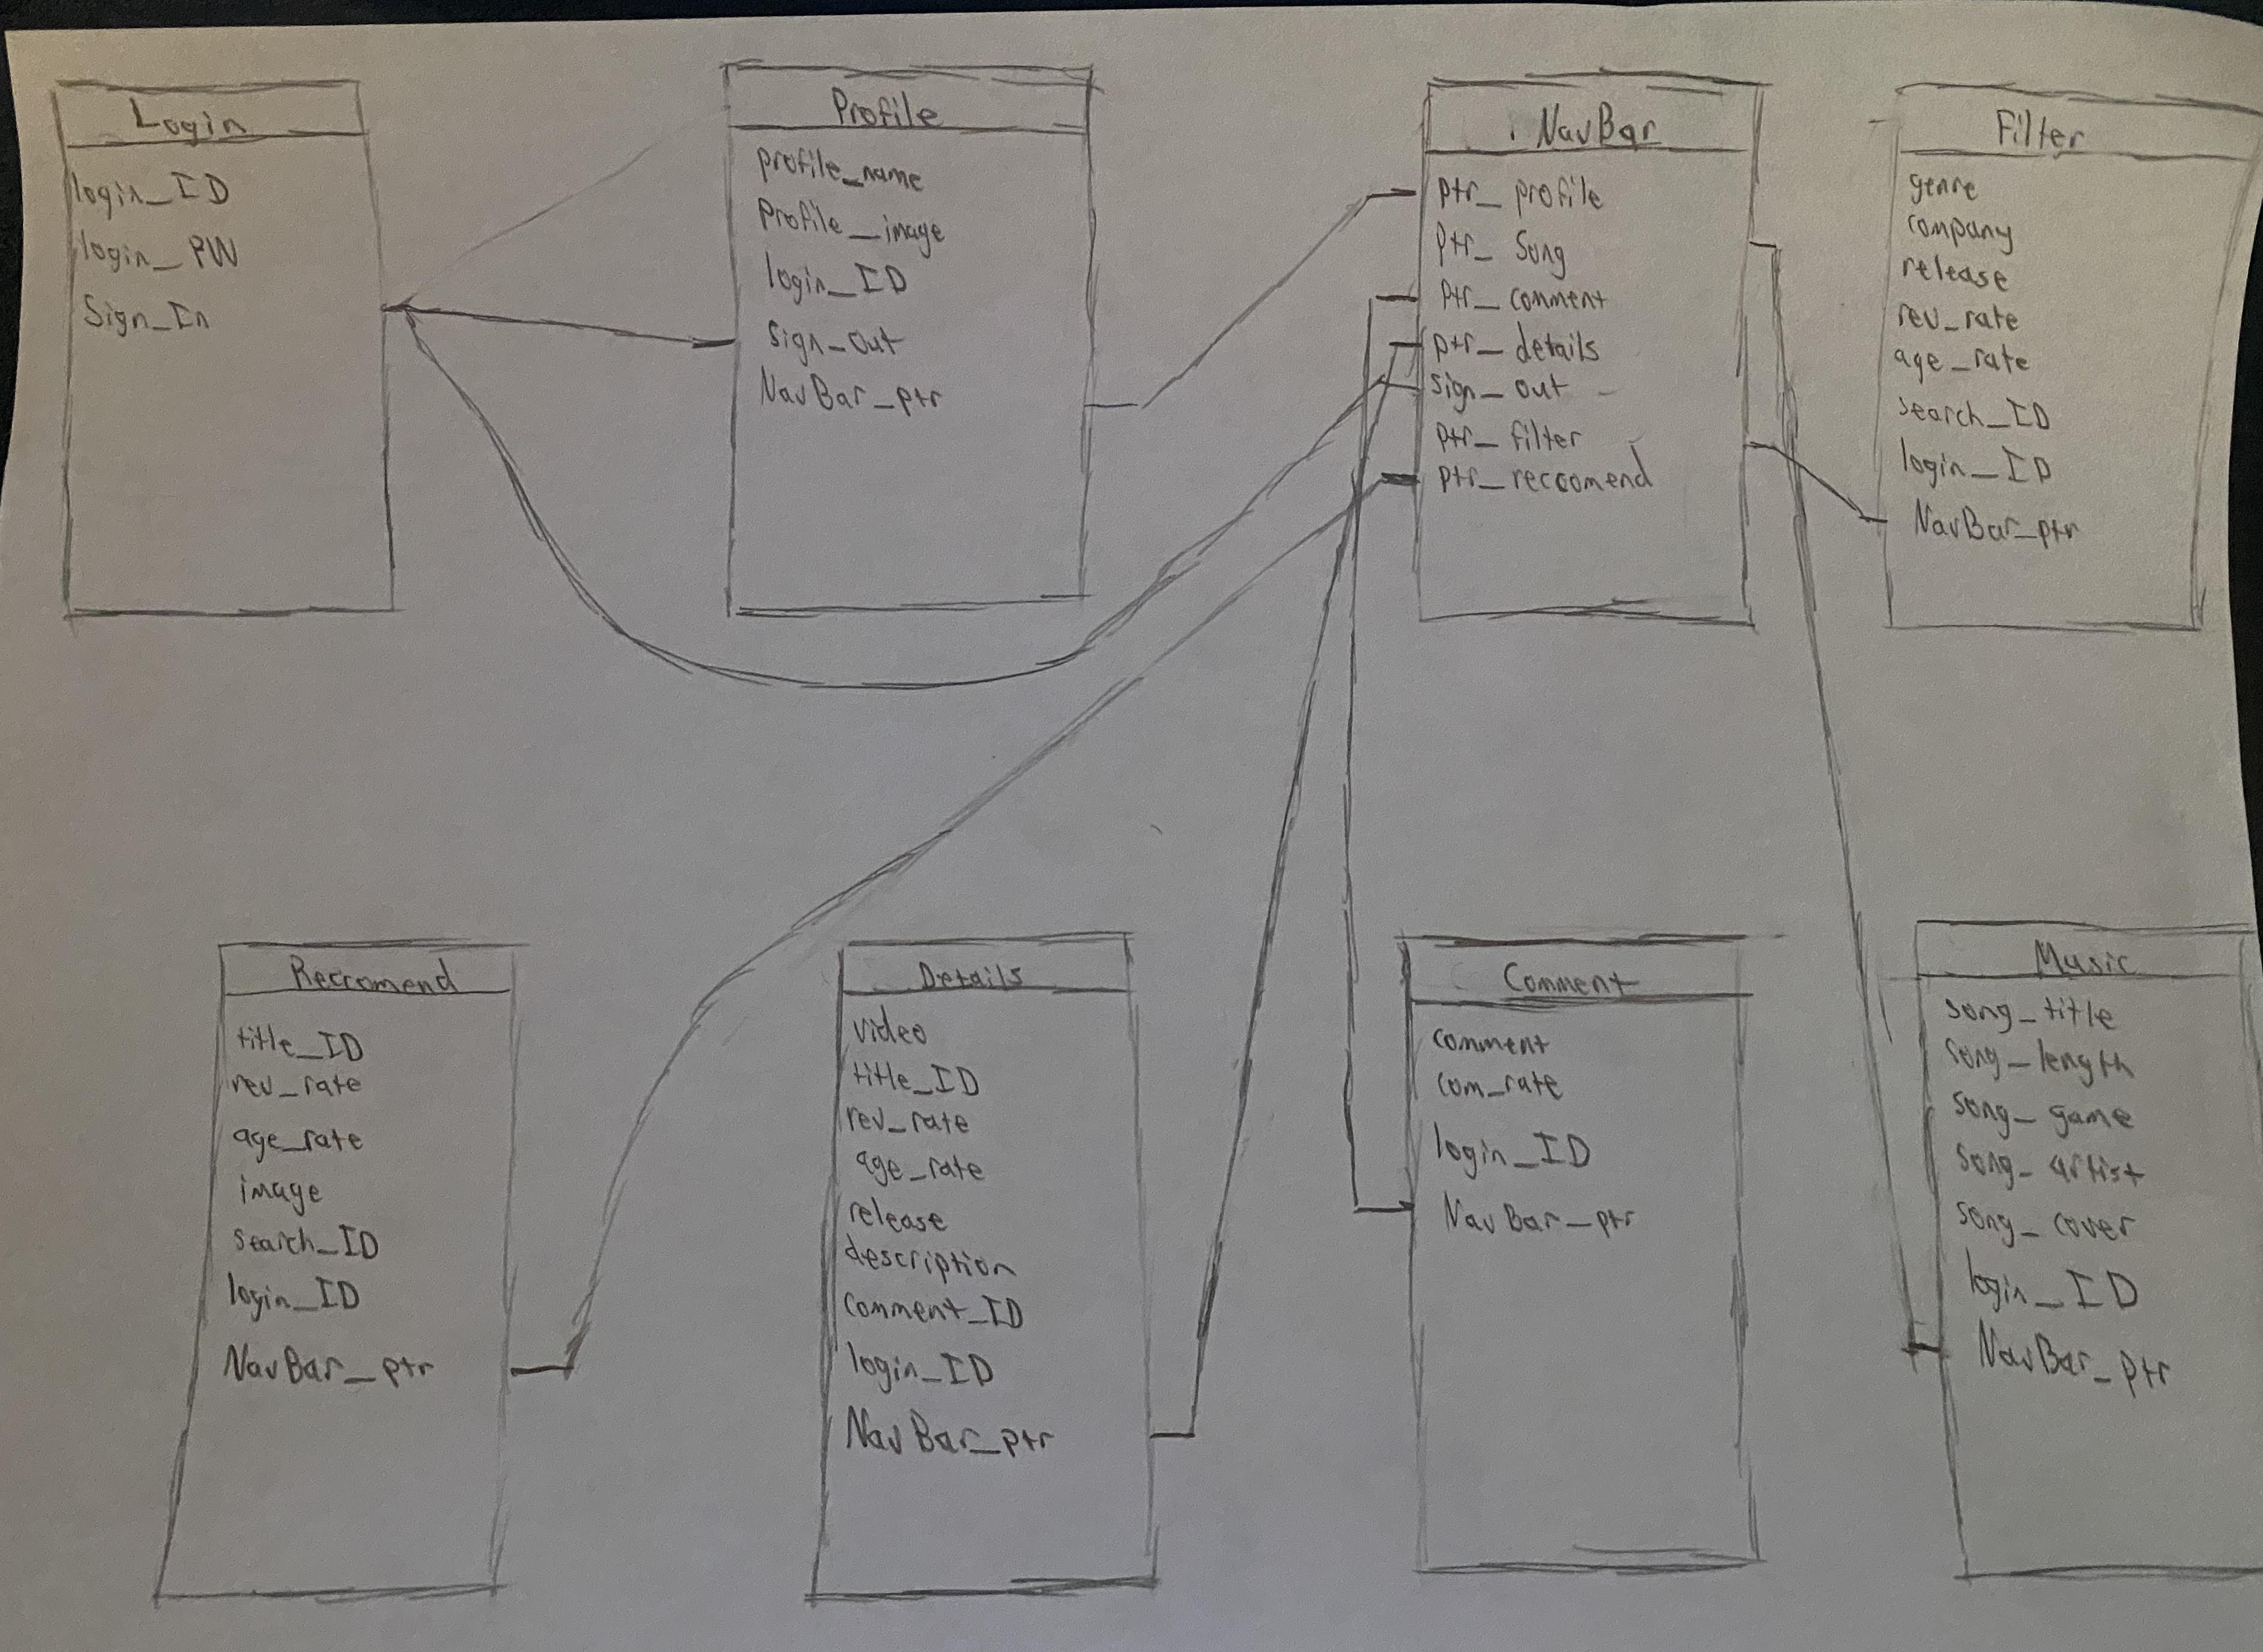 Login
login_ID
login_PW
Sign_In
Profile
profile_name
Profile_image
login_ID
sign_out
NavBar_ptr
NavBar
ptr_profile
ptr_song
ptr_comment
ptr_details
sign_out
ptr_filter
ptr_reccomend
Filter
genre
company
release
rev_rate
age_rate
search_ID
login_ID
NavBar_ptr
Reccomend
title_ID
rev_rate
age_rate
image
search_ID
login_ID
NavBar_ptr
Details
video
title_ID
rev_rate
age_rate
release
description
comment_ID
login_ID
NavBar_ptr
Comment
comment
com_rate
login_ID
NavBar_ptr
Music
song_title
song_length
song_game
song_artist
song_cover
login_ID
NavBar_ptr